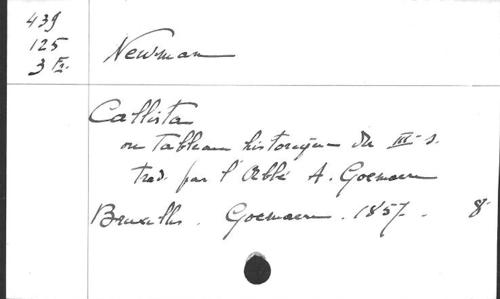 439
125
3 Fr.
Newman
Callista
ou Tableau historique du III e s.
trad. par l'Abbé A. Goemaere
Bruxelles. Goemaere. 1857. 8°